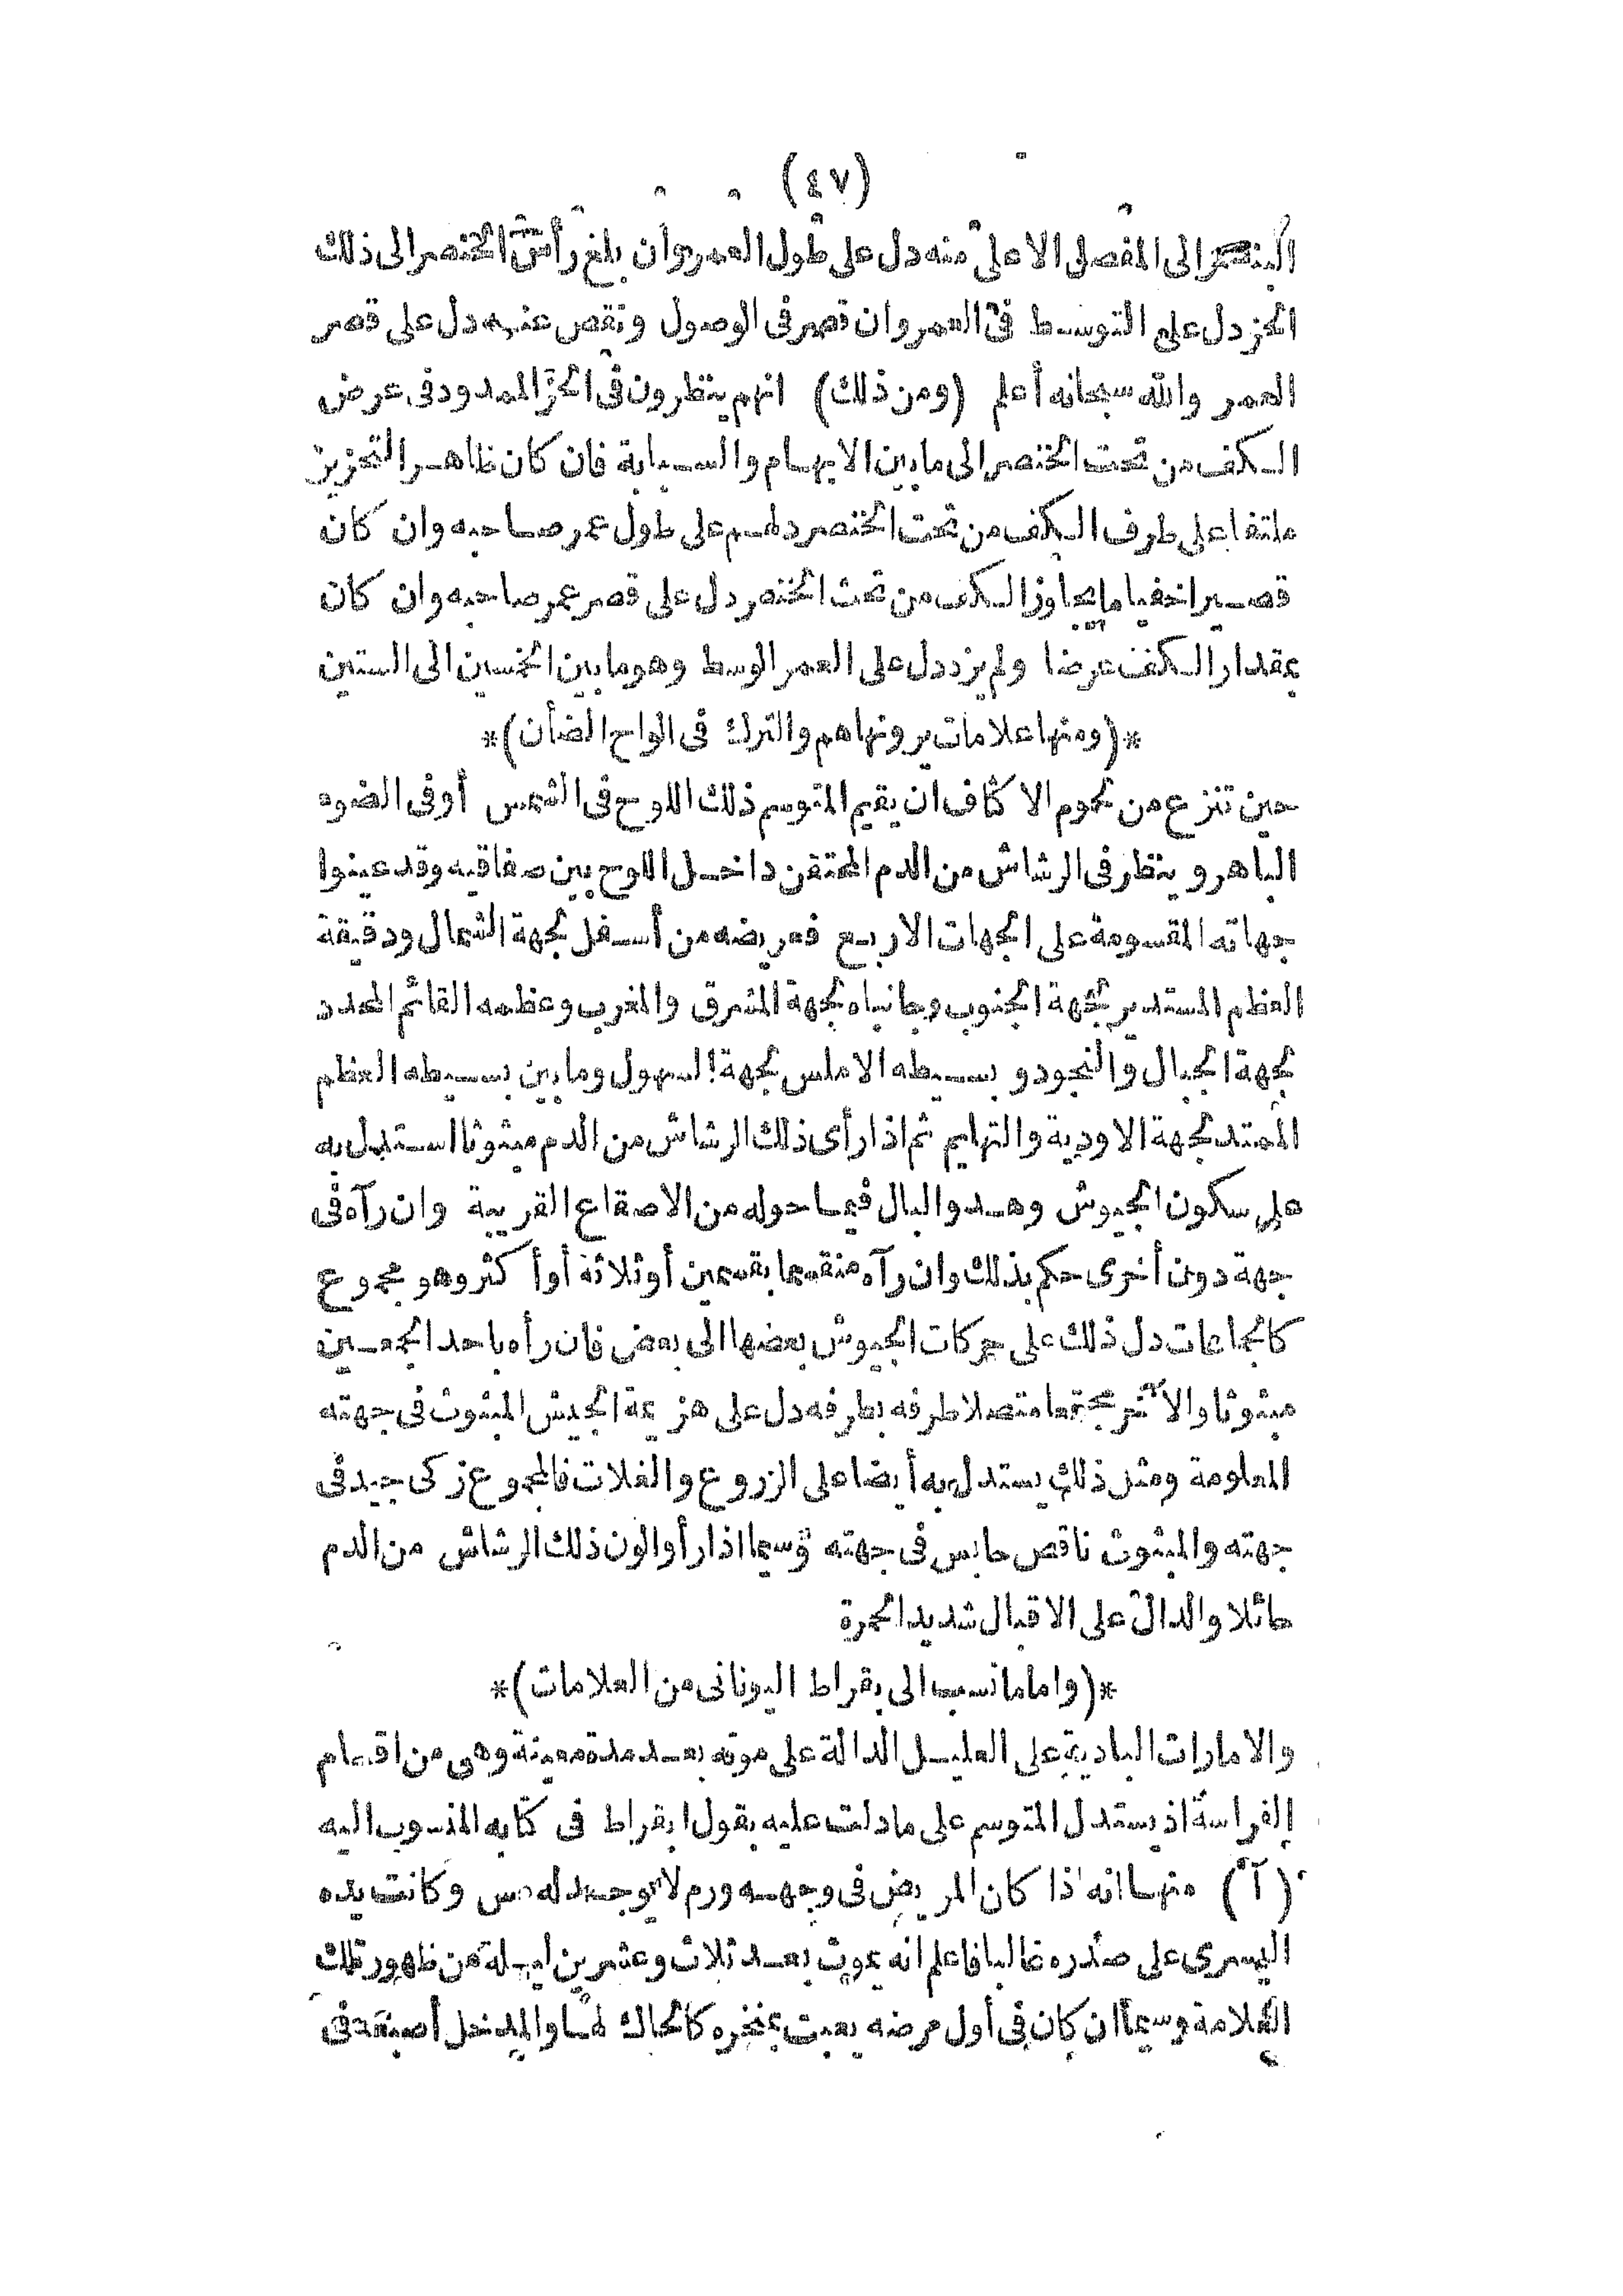 (٤٧)
البنصر الى المفصل الاعلى منه دل على طول العمر وان بلغ رأس الخنصر الى ذلك
الحز دل على التوسط فى العمر وان قصر فى الوصول ونقص عنه دل على قصر
العمر والله سبحانه أعلم (ومن ذلك) انهم ينظرون فى الحز الممدود فى عرض
الكف من تحت الخنصر الى ما بين الابهام والسبابة فان كان ظاهر التحزيز
ملتفا على طرف الكف من تحت الخنصر دلهم على طول عمر صاحبه وان كان
قصيرا خفيا ما يجاوز الكف من تحث الخنصر دل على قصر عمر صاحبه وان كان
بمقدار الكف عرضا ولم يزد دل على العمر الوسط وهو ما بين الخمسين الى الستين
*(ومنها علامات يرونها هم والترك فى الواح الضأن)*
حين تنزع من لحوم الاكتاف ان يقيم المتوسم ذلك اللوح فى الشمس أو فى الضوء
الباهر وينظر فى الرشاش من الدم المحتقن داخل اللوح بين صفاقيه وقد عينوا
جهاته المقسومة على الجهات الاربع فعريضه من أسفل لجهة الشمال ودقيقة
العظم المستدير لجهة الجنوب وجانباه لجهة المشرق والمغرب وعظمه القائم المحدد
لجهة الجبال والنجود وبسيطه الاملس لجهة السهول وما بين بسيطه العظم
الممتد لجهة الاودية والتهايم ثم اذا رأى ذلك الرشاش من الدم مبثوثا استدل به
على سكون الجيوش وهدو البال فيما حوله من الاصقاع القريبة وان رآه فى
جهة دون أخرى حكم بذلك وان رآه منقسما بقسمين أو ثلاثة أو أكثر وهو مجموع
كالجماعات دل ذلك على حركات الجيوش بعضها الى بعض فان رأه باحد الجمعين
مبثوثا والآخر مجتمعا متصلا طرفه بطرفه دل على هزيمة الجيش المبثوث فى جهته
المعلومة ومثل ذلك يستدل به أيضا على الزروع والغلات فالمجموع زكى جيد فى
جهته والمبثوث ناقص حابس فى جهته وسيما اذا رأوا لون ذلك الرشاش من الدم
حائلا والدال على الاقبال شديد الحمرة
*(واما ما نسب الى بقراط اليونانى من العلامات)*
والامارات البادية على العليل الدالة على موته بعد مدة معينة وهى من اقسام
الفراسة اذ يستدل المتوسم على ما دلت عليه بقول ابقراط فى كتابه المنسوب اليه
(آ) منها انه اذا كان المريض فى وجهه ورم لا يوجد له مس وكانت يده
اليسرى على صدره غالبا فاعلم انه يموت بعد ثلاث وعشرين ليلة من ظهور تلك
العلامة وسيما ان كان فى أول مرضه يعبث بمنخره كالحاك لها والمدخل أصبعه فى